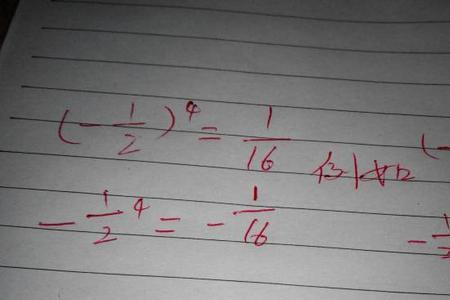 (-1/2)^4 = 1/16 例如 (-
-1/2^4 = -1/16 -1/2